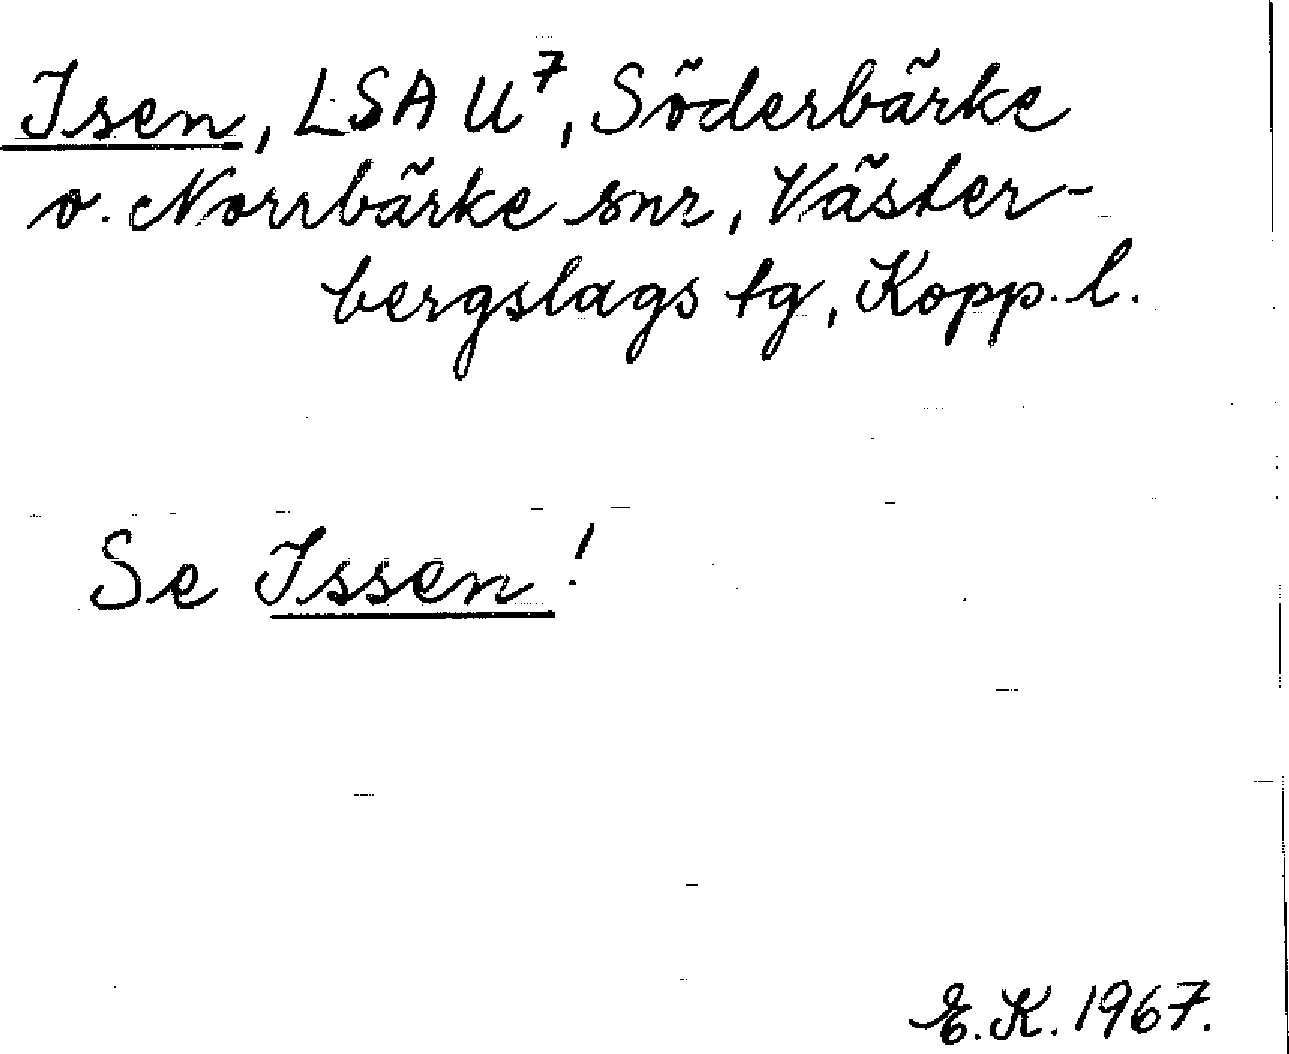 Isen, LSA U⁷, Söderbärke
o. Norrbärke snr, Väster-
bergslags tg, Kopp. l.
Se Issen!
E. K. 1967.